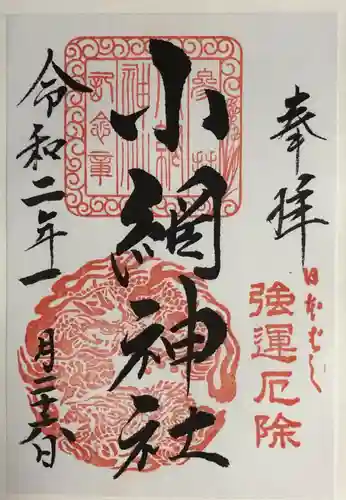 奉拝
日本ばし
強運厄除
小網神社
令和二年一月二十二日